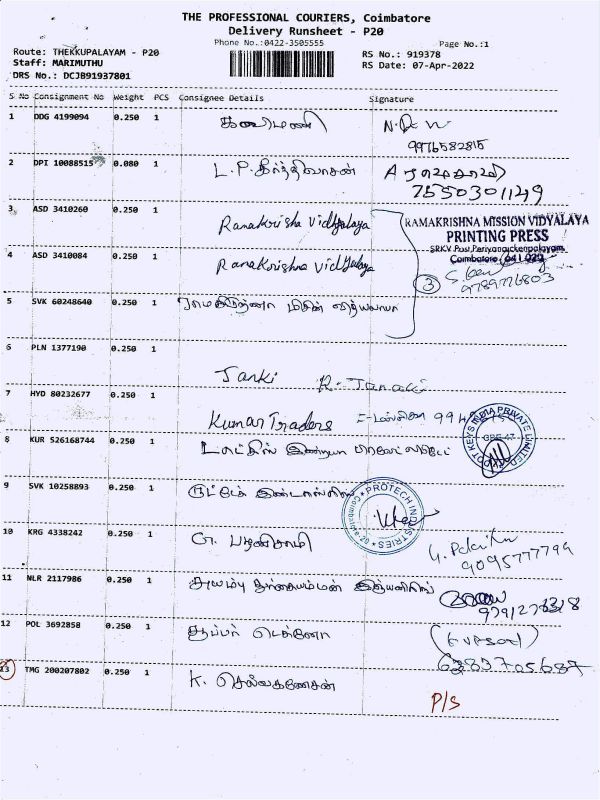 THE PROFESSIONAL COURIERS, Coimbatore
Delivery Runsheet - P20
Phone No.:0422-3505555
Page No.:1
Route: THEKKUPALAYAM - P20
Staff: MARIMUTHU
DRS No.: DCJB91937801
RS No.: 919378
RS Date: 07-Apr-2022
S No Consignment No Weight PCS Consignee Details Signature
1 DDG 4199094 0.250 1 கலாமணி
9976582815
2 DPI 10088515 0.080 1 L.P.கீர்த்திவாசன்
7550301149
3 ASD 3410260 0.250 1 Ramakrisha Vidhyalaya
RAMAKRISHNA MISSION VIDYALAYA
PRINTING PRESS
SRKV Post, Periyanaickenpalayam,
Coimbatore - 641 020
4 ASD 3410084 0.250 1 Ramakrishna Vidhyalaya
3
9789776803
5 SVK 60248640 0.250 1
6 PLN 1377190 0.250 1 Janki R. Janaki
7 HYD 80232677 0.250 1 Kumar Traders
8 KUR 526168744 0.250 1
KEYS INDIA PRIVATE LIMITED
9 SVK 10258893 0.250 1
PROTECH INDUSTRIES
Coimbatore
10 KRG 4338242 0.250 1 G. பழனிசாமி
9095777799
11 NLR 2117986 0.250 1
12 POL 3692858 0.250 1 சூப்பர் டெக்னோ
6383705687
13 TMG 200207802 0.250 1 K. செல்வகணேசன்
P/S